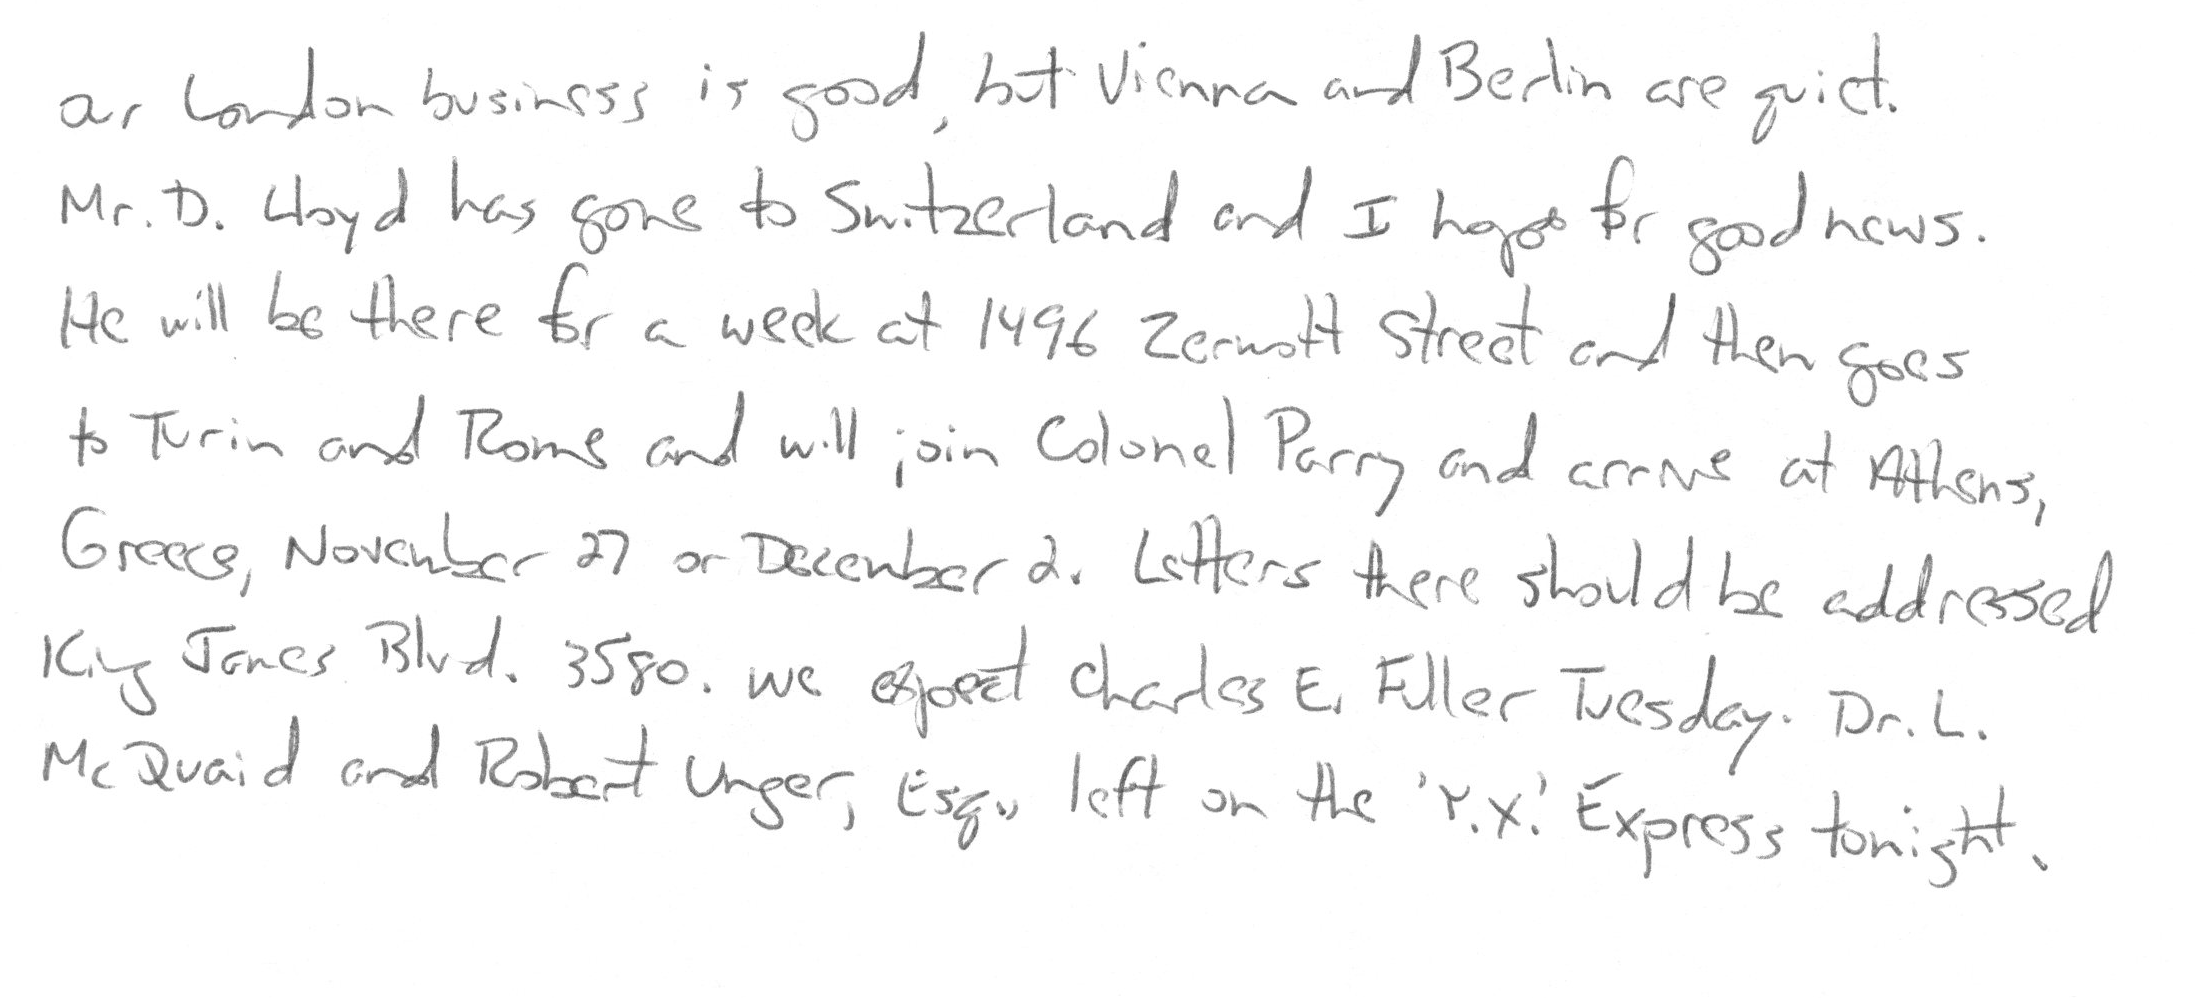 our London business is good, but Vienna and Berlin are quiet.
Mr. D. Lloyd has gone to Switzerland and I hope for good news.
He will be there for a week at 1496 Zermott Street and then goes
to Turin and Rome and will join Colonel Parry and arrive at Athens,
Greece, November 27 or December 2. Letters there should be addressed
King James Blvd. 3580. we expect Charles E. Fuller Tuesday. Dr. L.
McQuaid and Robert Unger, Esq., left on the 'Y.X.' Express tonight.